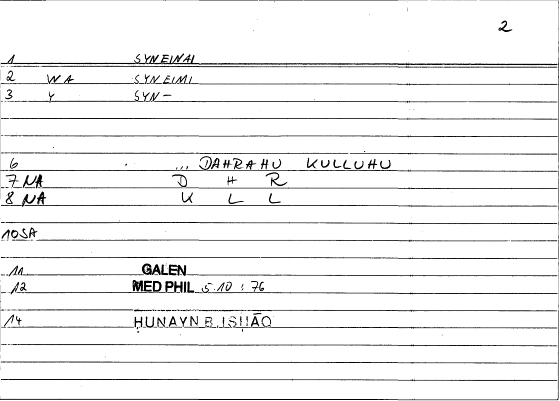 2
1 SYNEINAI
2 WA SYNEIMI
3 Y SYN-
6 ... DAHRAHU KULLUHU
7 NA D H R
8 NA K L L
10 SA
11 GALEN
12 MED PHIL 5.10 : 76
14 ḤUNAYN B. ISḤĀQ